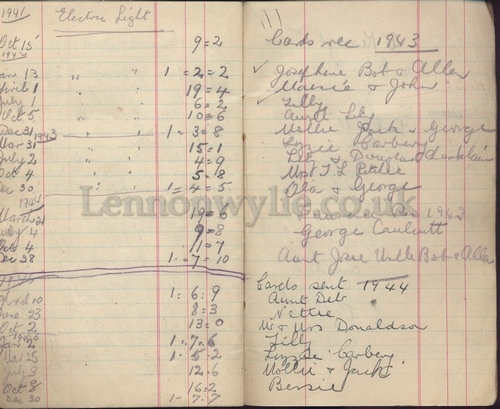 1941 Electric Light
Oct 15 9=2
Jan 13 " " 1=2=2
April 1 19=4
July 1 " " 6=2
Oct 5 10=6
Dec 31 1943 1=3=8
Mar 31 " " 15=1
July 2 4=9
Oct 4 " " 5=8
Dec 30 1=4=5
1944
March 31 19=6
July 4 9=8
Oct 4 11=7
Dec 28 1=7=10
March 10 1=6=9
June 23 8=3
Oct 2 13=0
Jan 2 1=7=6
Mar 25 1=5=2
July 3 12=6
Oct 8 16=2
Dec 30 1=7=7
Cards rec 1943
Josephine Bob & Allan
Mamie & John
Lilly
Aunt Lily
Nellie Jack & George
Lizzie Carbery
Douglas
Mrs T L
Ola & George
1943
George
Aunt Josie Uncle Bob & Allan
Cards sent 1944
Aunt Deb
Nettie
Mr & Mrs Donaldson
Lilly
Lizzie Carbery
Mollie & Jack
Bessie
Lennonwylie.co.uk